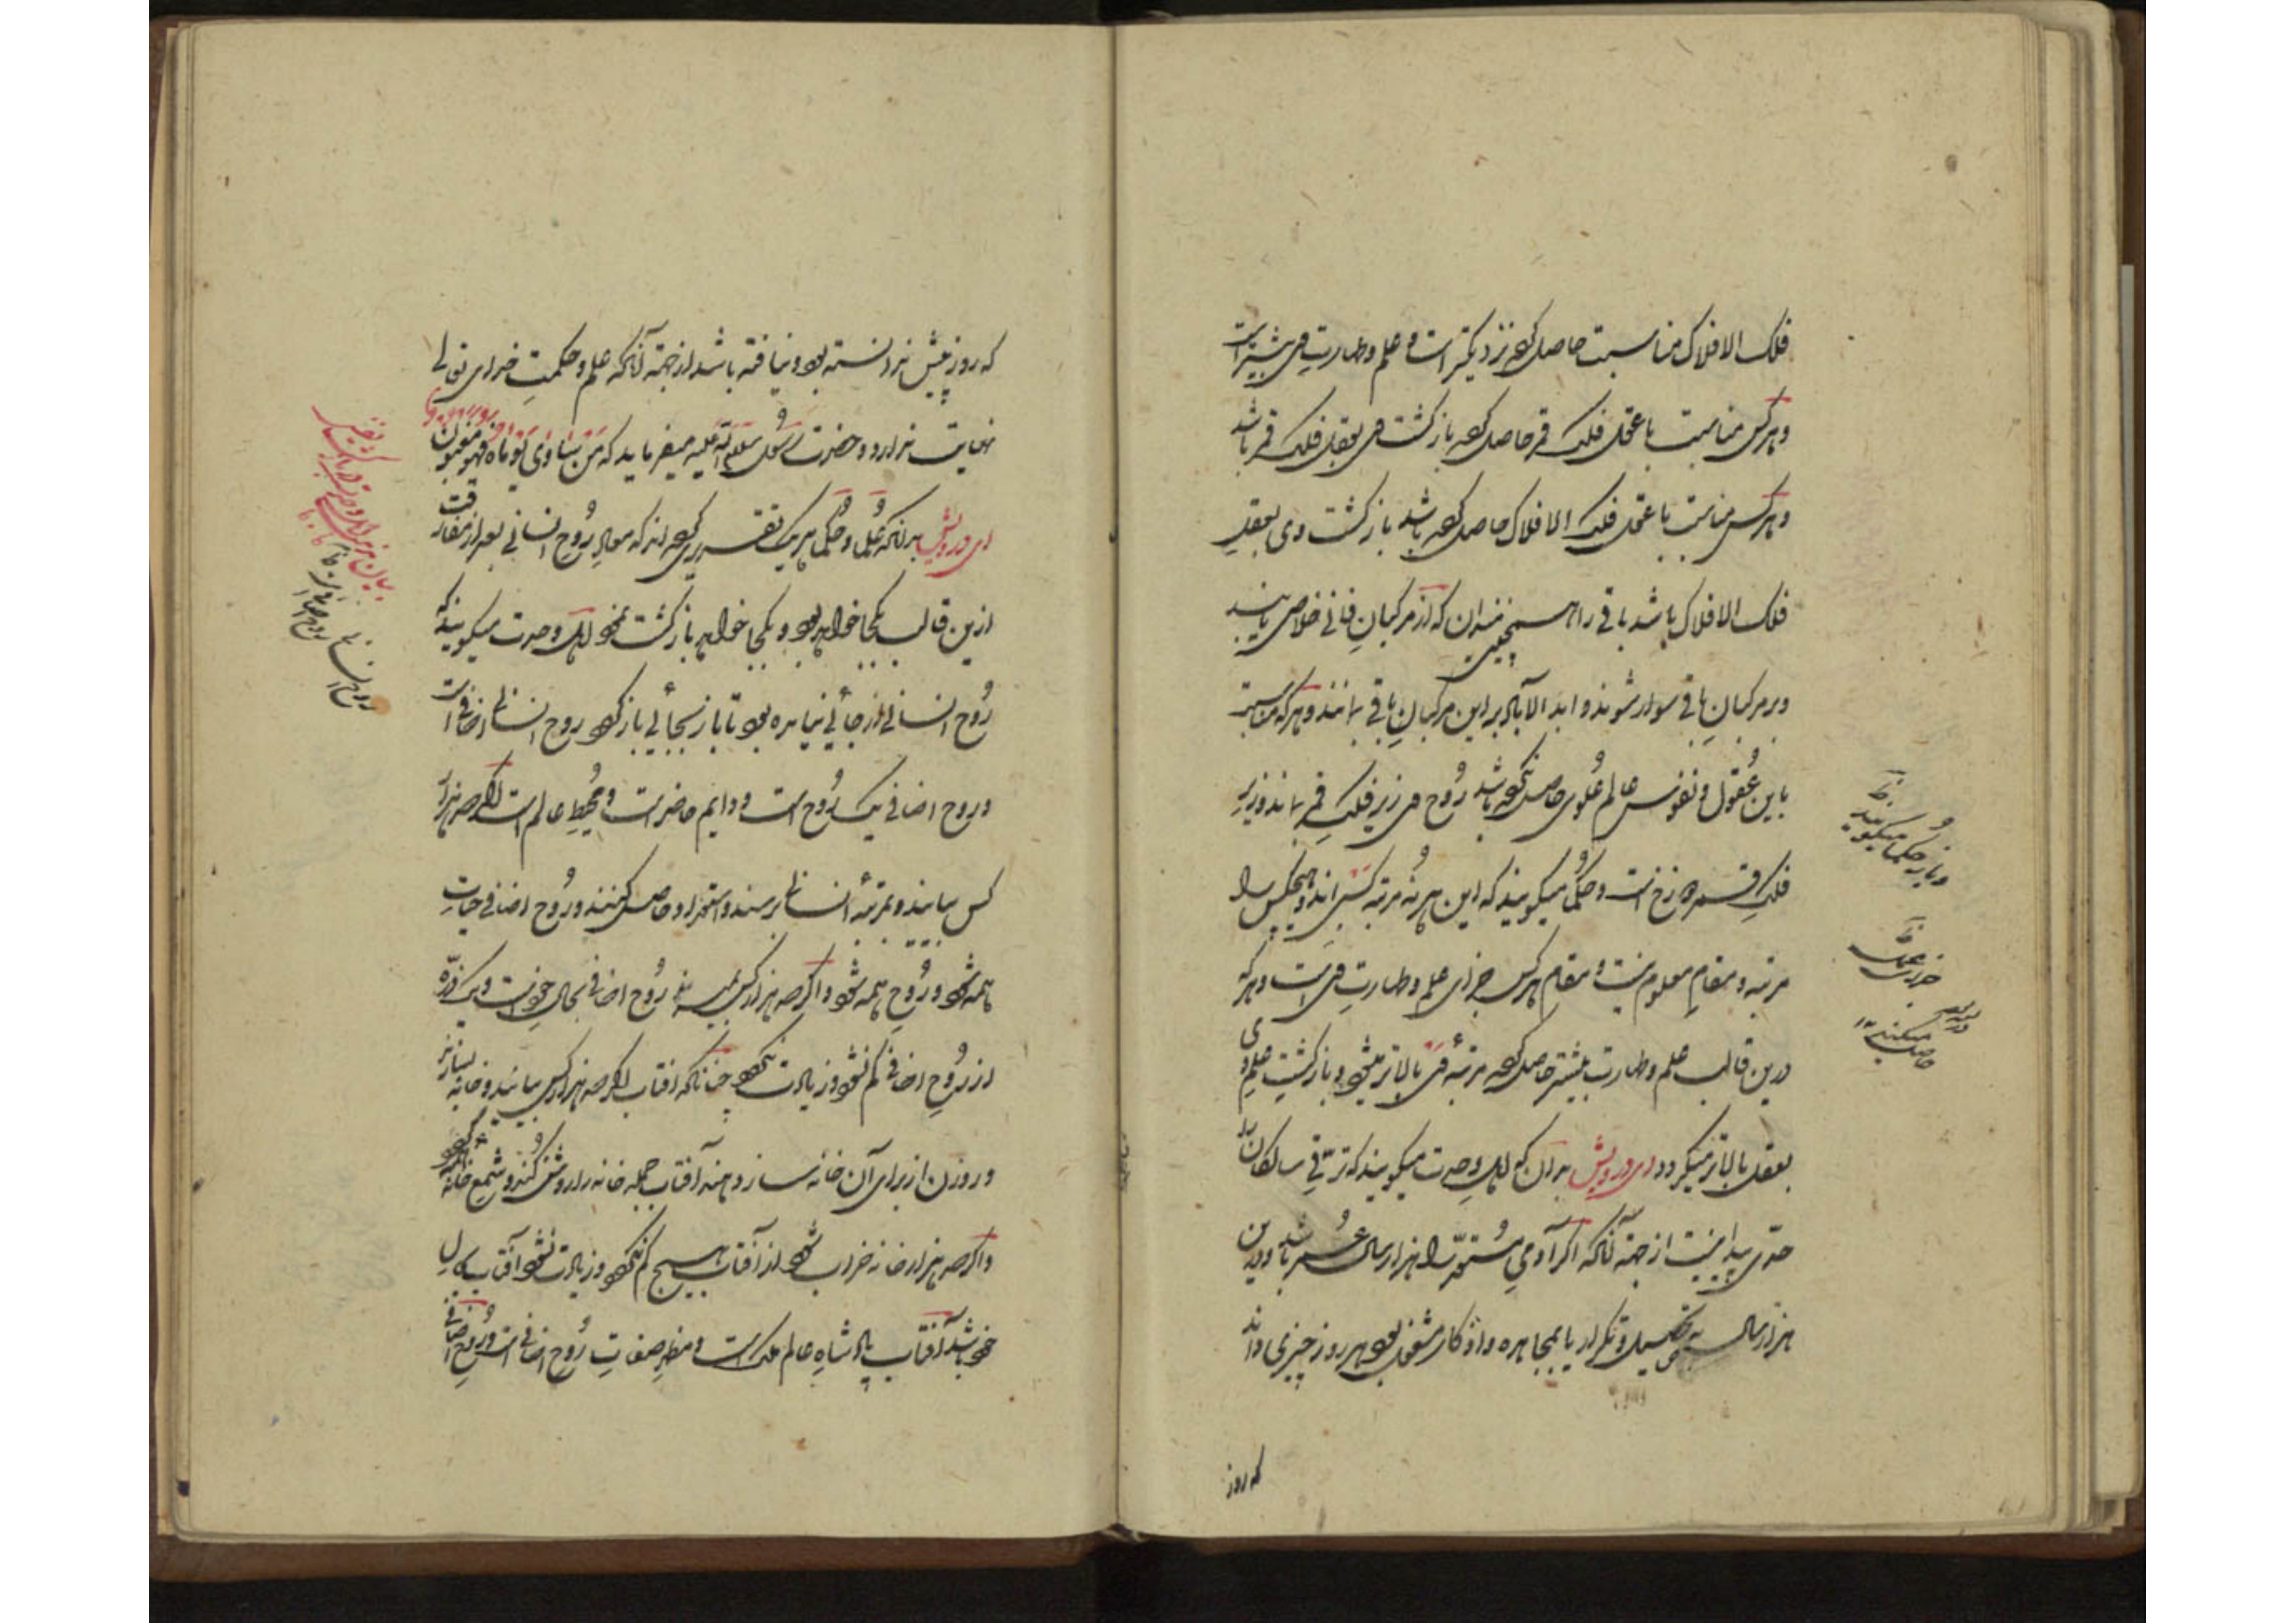 فلک الافلاک مناسبت حاصل کرده نزدیکتر است و علم و طهارت وی بیشتر است
و هر کس مناسبت با عقل فلک قمر حاصل کرد بازگشت وی بعقل فلک قمر باشد
و هر کس مناسبت با عقل فلک الافلاک حاصل کرده باشد بازگشت وی بعقل
فلک الافلاک باشد باقی را همچنین میدان که از مرکبان فانی خلاص یابند
و بر مرکبان باقی سوار شوند و ابد الآباد بر این مرکبان باقی بمانند و هر که مناسبت
باین عقول و نفوس عالم علوی حاصل نکرده باشد روح وی زیر فلک قمر بماند و زیر
فلک قمر دوزخ است و حکما میگویند که این هر نه مرتبه کسبی‌اند و هیچکس را
مرتبه و مقام معلوم نیست و مقام هر کس جزای علم و طهارت وی است و هر که
درین قالب علم و طهارت بیشتر حاصل کرد مرتبهٔ وی بالاتر میشود و بازگشت علم وی
بعقل بالاتر میگردد ای درویش بدان که اهل وحدت میگویند که ترقی سالکان را
حدی پیدا نیست از جهت آنکه اگر آدمی مستعد را هزار سال عمر باشد و درین
هزار سال به تحصیل و تکرار یا بمجاهده و اذکار مشغول بود هر روز چیزی داند
که روز
و باز حکما میگویند
که روز پیش ندانسته بود و نیافته باشد از جهت آنکه علم و حکمت خدای تعالی
نهایت ندارد و حضرت رسول صلی الله علیه میفرماید که من تساوی یوماه فهو مغبون
ای درویش بدانکه علما و حکما هر یک تقریری کرده‌اند که معاد روح انسانی بعد از مفارقت
ازین قالب بکجا خواهد بود و بکجا خواهد بازگشت نمود اهل وحدت میگویند که
روح انسانی از جائی نیامده بود تا باز بجائی باز گردد روح انسانی اضافی است
و روح اضافی یک روح است و دایم حاضر است و محیط عالم است اگر صد هزار
کس بیایند و بمرتبهٔ انسانی برسند و استعداد حاصل کنند و روح اضافی حیات
همه شود و روح همه شود و اگر صد هزار کس بمیرند روح اضافی بحال خود است و یک ذره
از روح اضافی کم نشود و زیادت نگردد چنانکه آفتاب اگر صد هزار کس بیایند و خانه بسازند
و روزن از برای آن خانه سازد همه آفتاب جمله خانه را روشن کند و شمع خانه گردد
و اگر صد هزار خانه خراب شود از آفتاب هیچ کم نگردد و زیادت نشود آفتاب بحال
خود باشد آفتاب پادشاه عالم ملک است و مظهر صفات روح اضافی است و روح اضافی